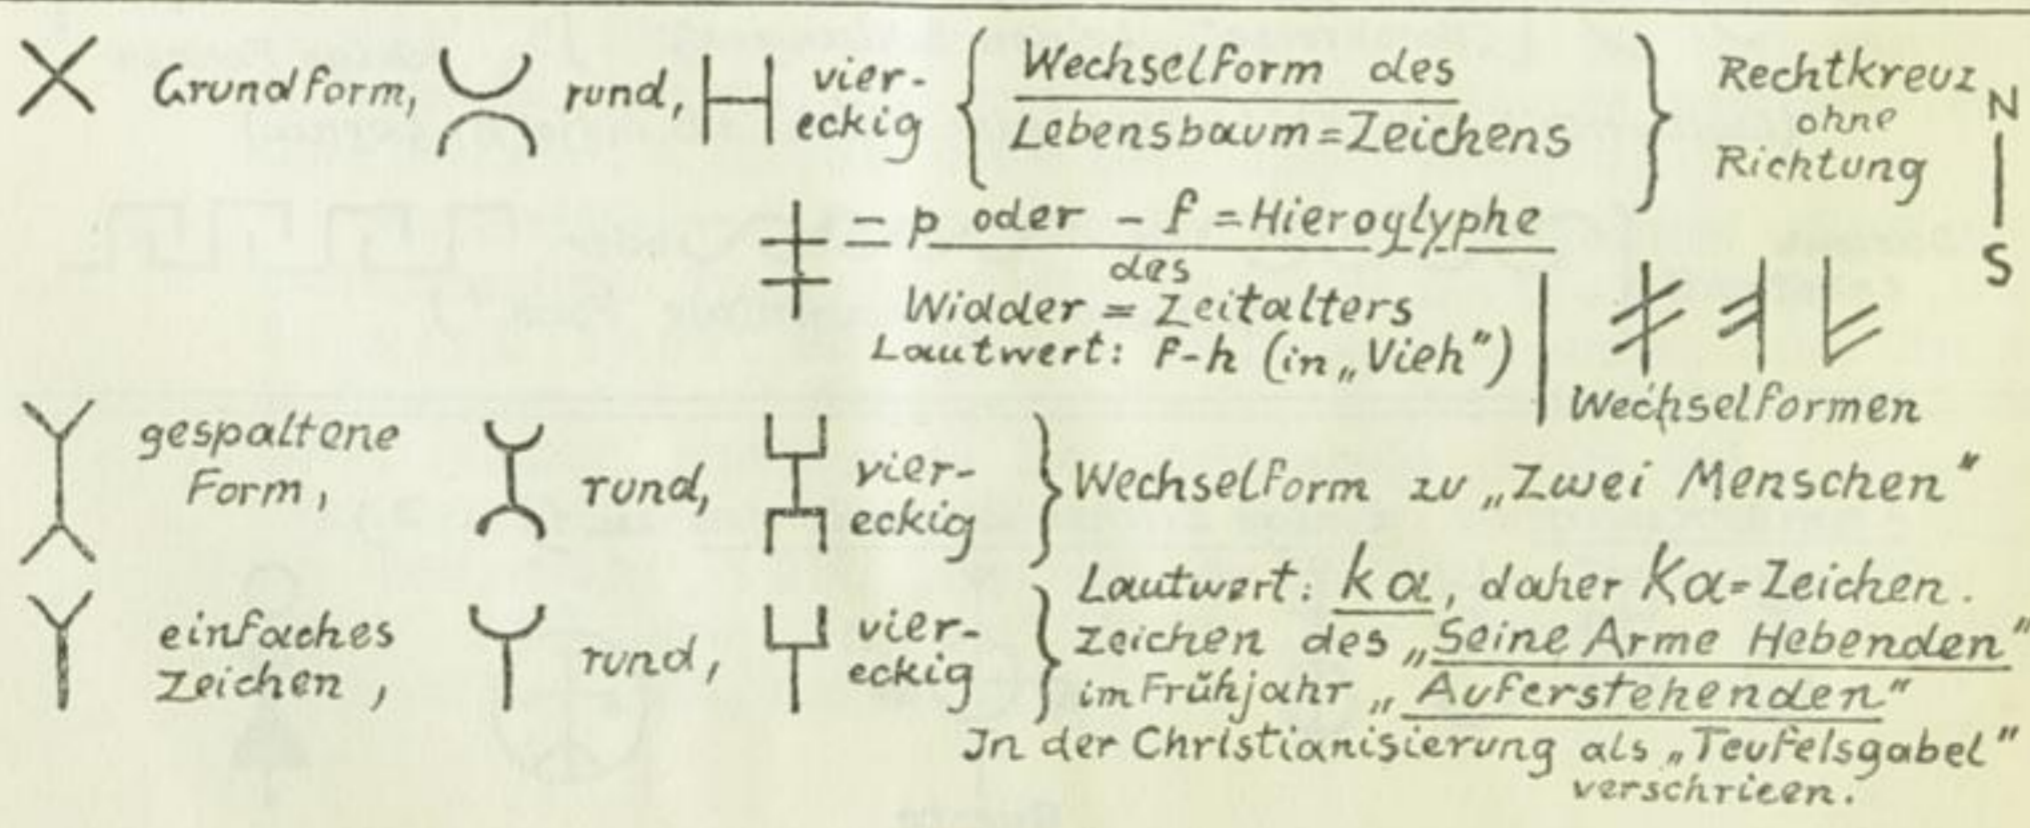 Grundform, rund, vier-
eckig
Wechselform des
Lebensbaum=Zeichens
Rechtkreuz
ohne
Richtung
N
S
– p oder – f = Hieroglyphe
des
Widder = Zeitalters
Lautwert: F-h (in „Vieh")
Wechselformen
gespaltene
Form, rund, vier-
eckig
Wechselform zu „Zwei Menschen"
einfaches
Zeichen, rund, vier-
eckig
Lautwert: ka, daher Ka=Zeichen.
Zeichen des „Seine Arme Hebenden"
im Frühjahr „Auferstehenden"
In der Christianisierung als „Teufelsgabel"
verschrieen.